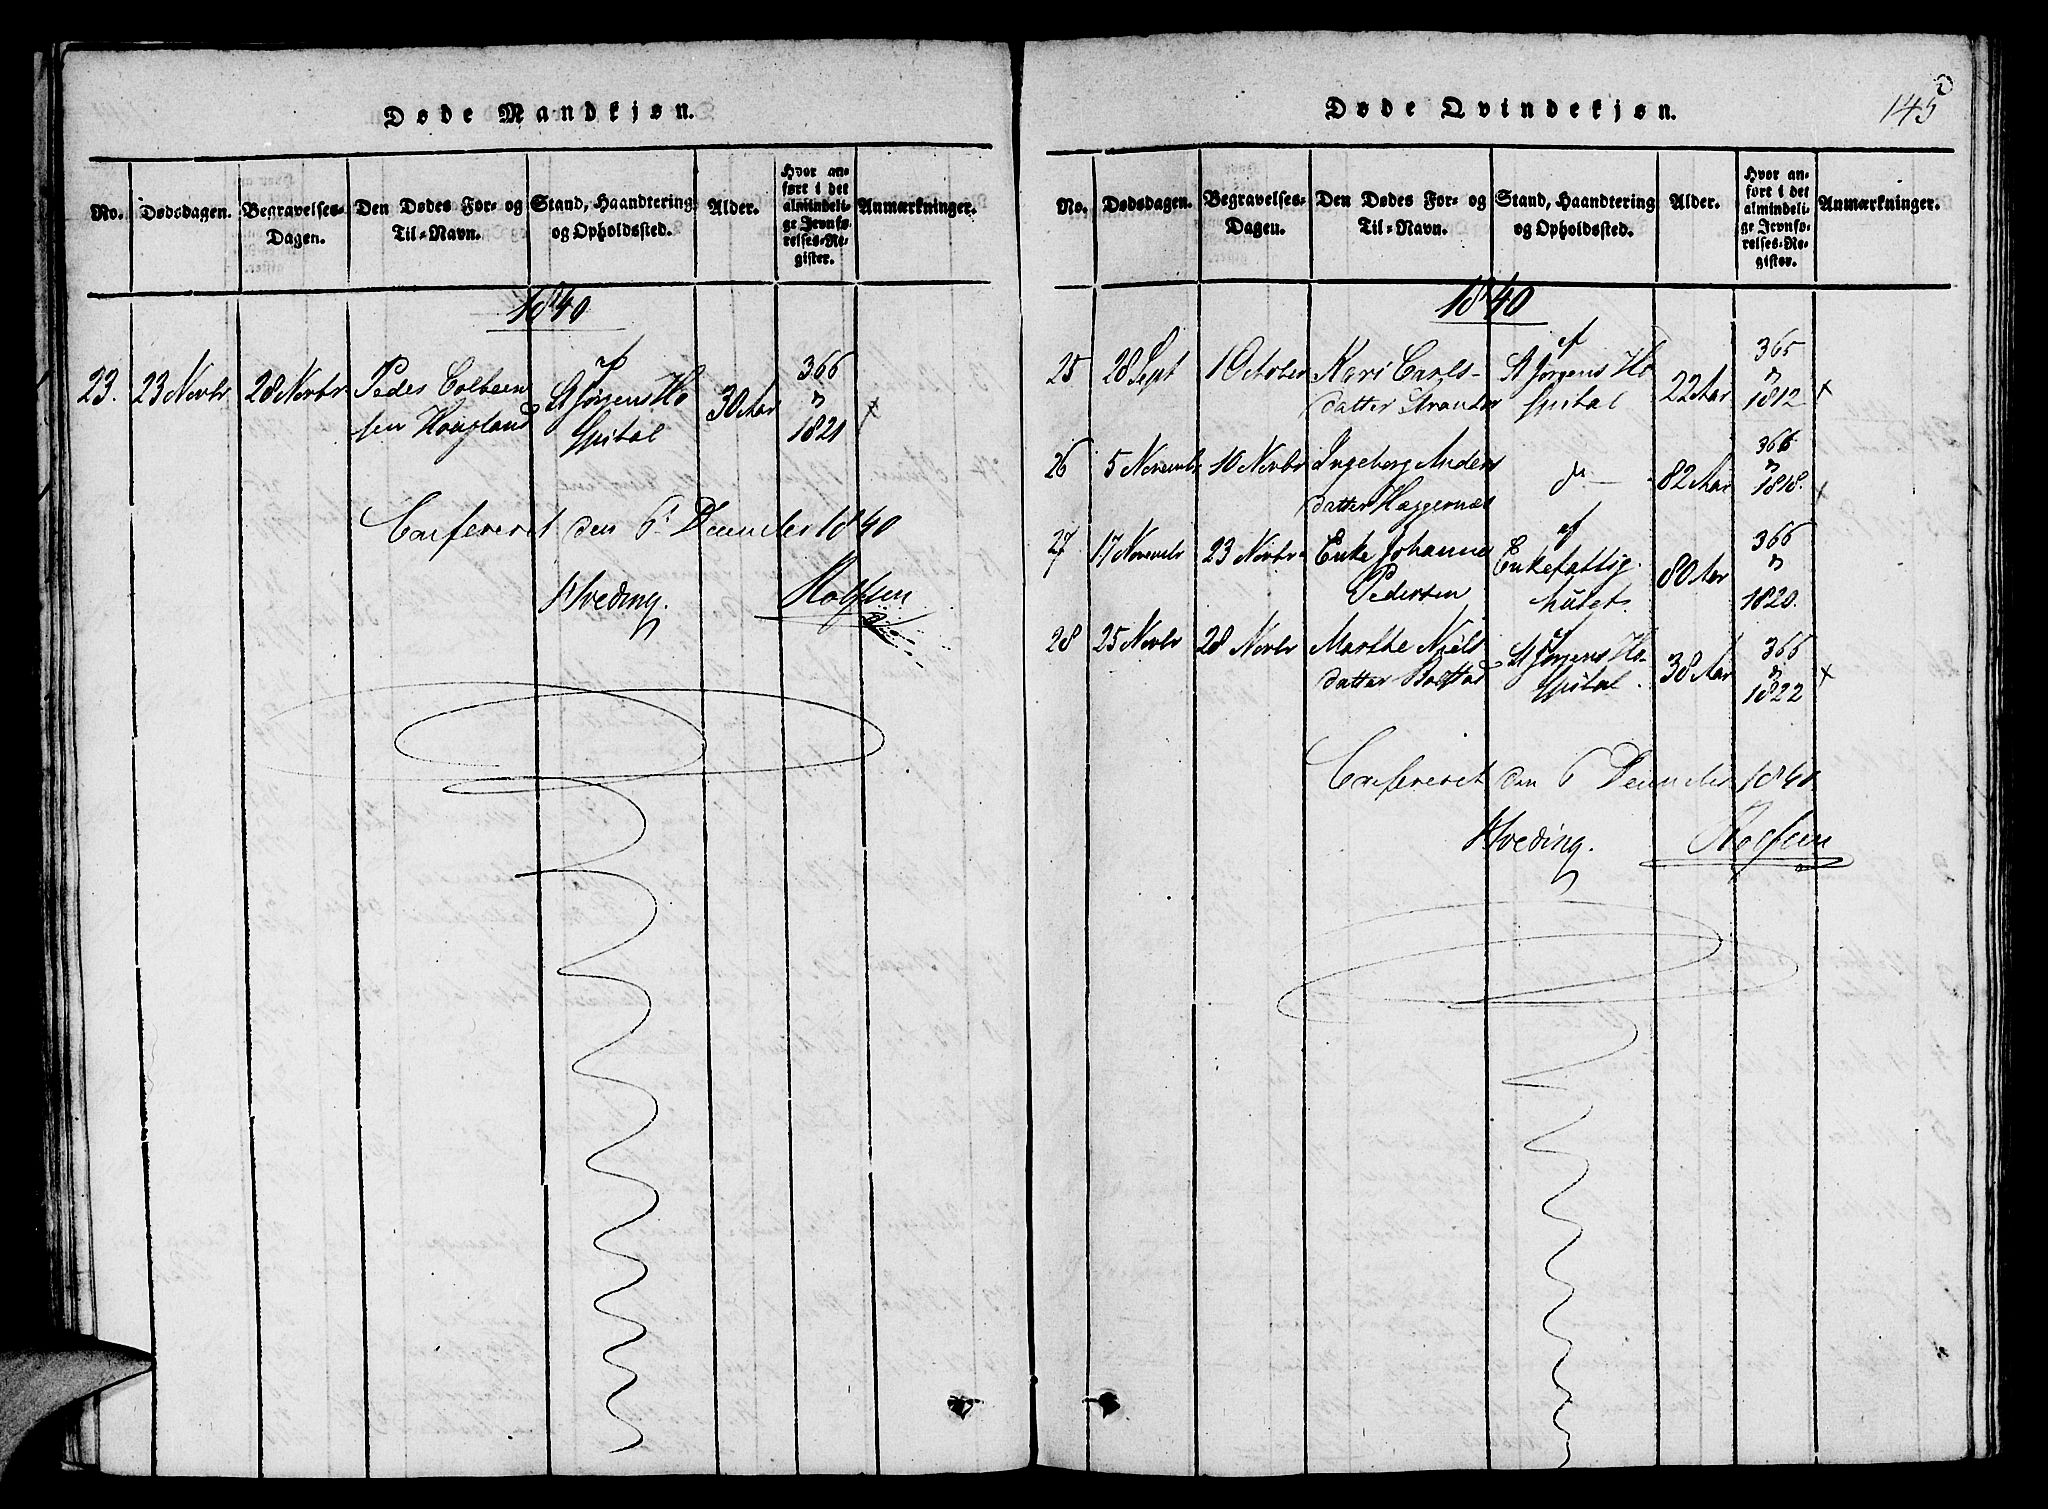 Døde Mandkjøn.
No.
Dødsdagen.
Begravelses-
Dagen.
Den Dødes For- og
Til-Navn.
Stand, Haandtering
og Opholdssted.
Alder.
Hvor an-
ført i det
almindeli-
ge Jevnfø-
relses-Re-
gister.
Anmærkninger.
1840
23.
23 Novbr
28 Novbr
Peder Colbeen
sen Hougland
af
St Jørgens Ho
spital
30 Aar
366
n
1821
x
Confereret den 6 December 1840
Hveding.
Rolfsen
Døde Qvindekjøn.
145
No.
Dødsdagen.
Begravelses-
Dagen.
Den Dødes For- og
Til-Navn.
Stand, Haandtering
og Opholdssted.
Alder.
Hvor an-
ført i det
almindeli-
ge Jevnfø-
relses-Re-
gister.
Anmærkninger.
1840
25
28 Sept
1 October
Kari Carls-
datter
af
St Jørgens Ho
spital
22 Aar
365
n
1812
x
26
5 Novembr
10 Novbr
Ingeborg Anders
datter Haggernæs
do
82 Aar
366
n
1818.
x
27
17 Novembr
23 Novbr
Enke Johanne
Pedersen
af
Enkefattig-
huset
80 Aar
366
n
1820.
28
25 Novbr
28 Novbr
Marthe Niels
datter Bolstad
af
St Jørgens Ho-
spital.
38 Aar
366
n
1822
x
Confereret den 6 December 1840
Hveding.
Rolfsen